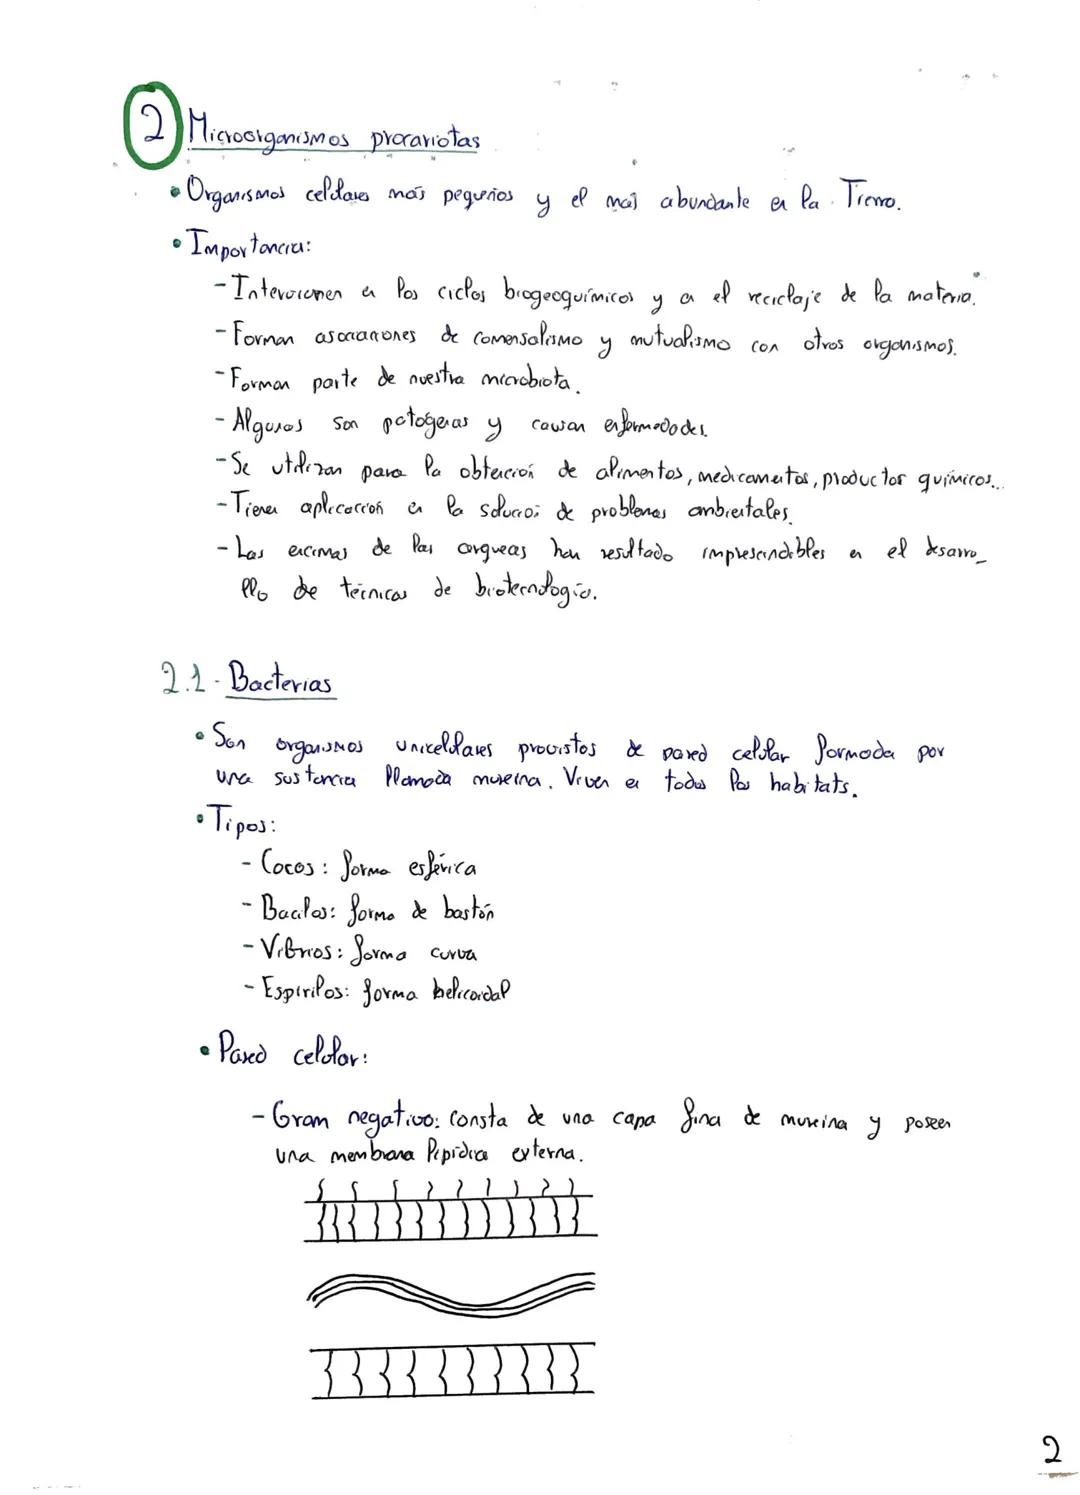 2 Microorganismos procariotas
• Organismos celulares más pequeños y el más abundante en la Tierra.
• Importancia:
- Intervienen en los ciclos biogeoquímicos y en el reciclaje de la materia.
- Forman asociaciones de comensalismo y mutualismo con otros organismos.
- Forman parte de nuestra microbiota.
- Algunos son patógenas y causan enfermedades.
- Se utilizan para la obtención de alimentos, medicamentos, productos químicos...
- Tienen aplicación en la solución de problemas ambientales.
- Las encimas de las arqueas han resultado imprescindibles en el desarro_
llo de técnicas de biotecnología.
2.1- Bacterias
• Son organismos unicelulares provistos de pared celular formada por
una sustancia llamada mureina. Viven en todos los habitats.
• Tipos:
- Cocos: forma esférica
- Bacilos: forma de bastón
- Vibrios: forma curva
- Espirilos: forma helicoidal
• Pared celular:
- Gram negativo: Consta de una capa fina de mureina y poseen
una membrana lipídica externa.
2